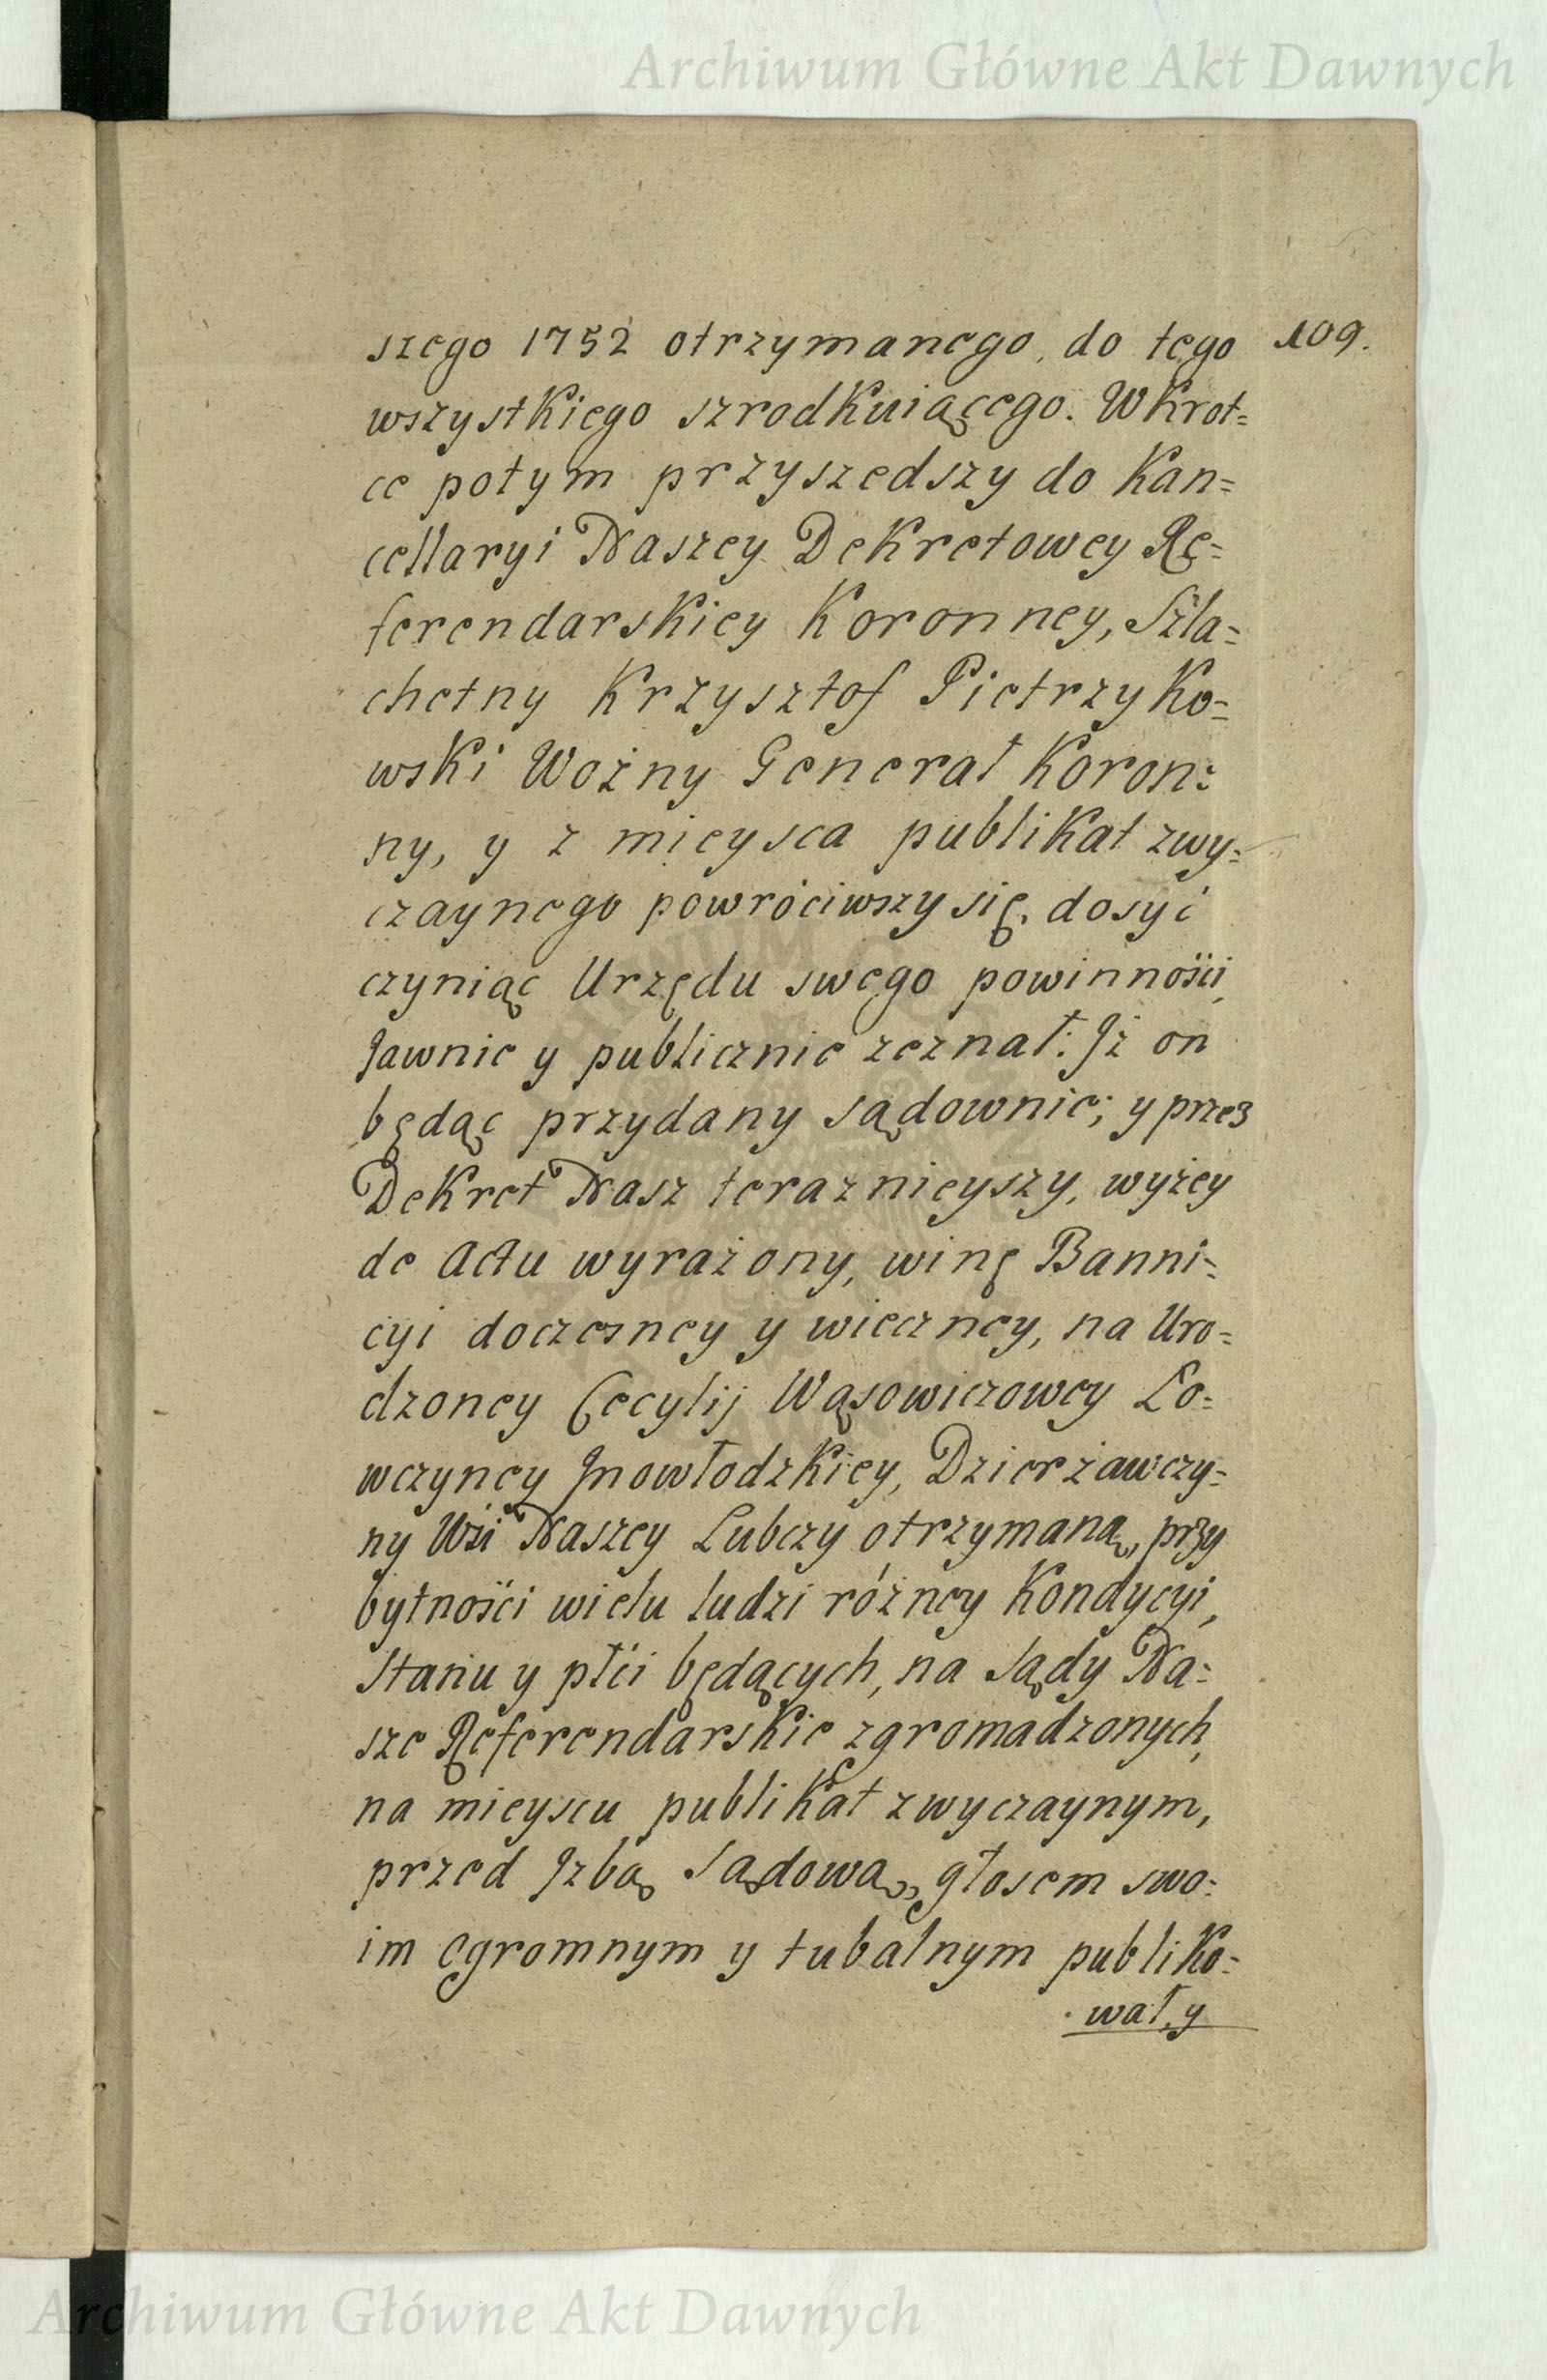 Archiwum Główne Akt Dawnych
szego 1752 otrzymanego, do tego 109.
wszystkiego szrodkuiącego. Wkrot=
ce potym przyszedszy do Kan=
cellaryi Naszey Dekretowey Re=
ferendarskiey Koronney, Szla=
chetny Krzysztof Pietrzyko=
wski Wożny Generał Koron=
ny, y z mieysca publikat zwy=
czaynego powróciwszy się, dosyć
czyniąc Urzędu swego powinności,
Jawnie y publicznie zeznał: Jż on
będąc przydany sądownie; y przez
Dekret Nasz teraznieyszy, wyżey
de Actu wyrażony, winę Banni=
cyi doczesney y wieczney, na Uro=
dzoney Cecylij Wąsowiczowey Ło=
wczyney Jnowłodzkiey, Dzierżawczy=
ny Wsi Naszey Lubczy otrzymaną, przy
bytności wielu ludzi różney Kondycyi,
Stanu y płci będących, na Sądy Na=
sze Referendarskie zgromadzonych,
na mieyscu publikat zwyczaynym,
przed Jzbą Sądową, głosem swo=
im ogromnym y tubalnym publiko=
wał, y
Archiwum Główne Akt Dawnych